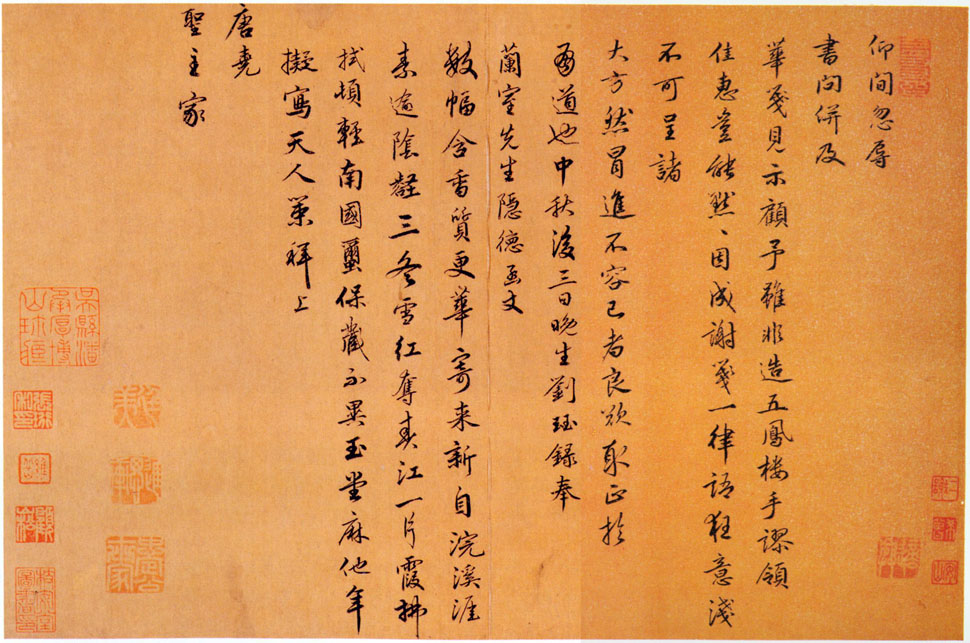 仰間忽辱
書問併及
華箋見示顧予雖非造五鳳樓手謬領
佳惠豈能默、因成謝箋一律語狂意淺
不可呈諸
大方然冒進不容已者良欲取正於
有道也中秋後三日晚生劉珏錄奉
蘭室先生隱德函丈
數幅含香質更華寄來新自浣溪涯
素逾陰壑三冬雪紅奪春江一片霞拂
拭頓輕南國繭保藏不異玉堂麻他年
擬寫天人策拜上
唐堯
聖主家